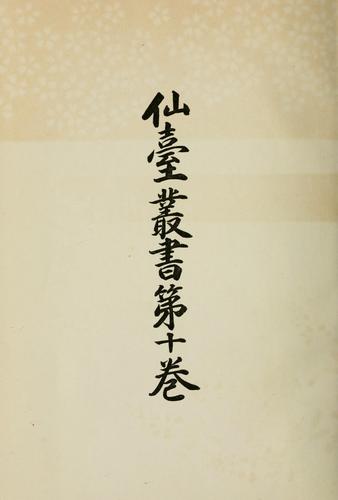 仙臺叢書第十卷